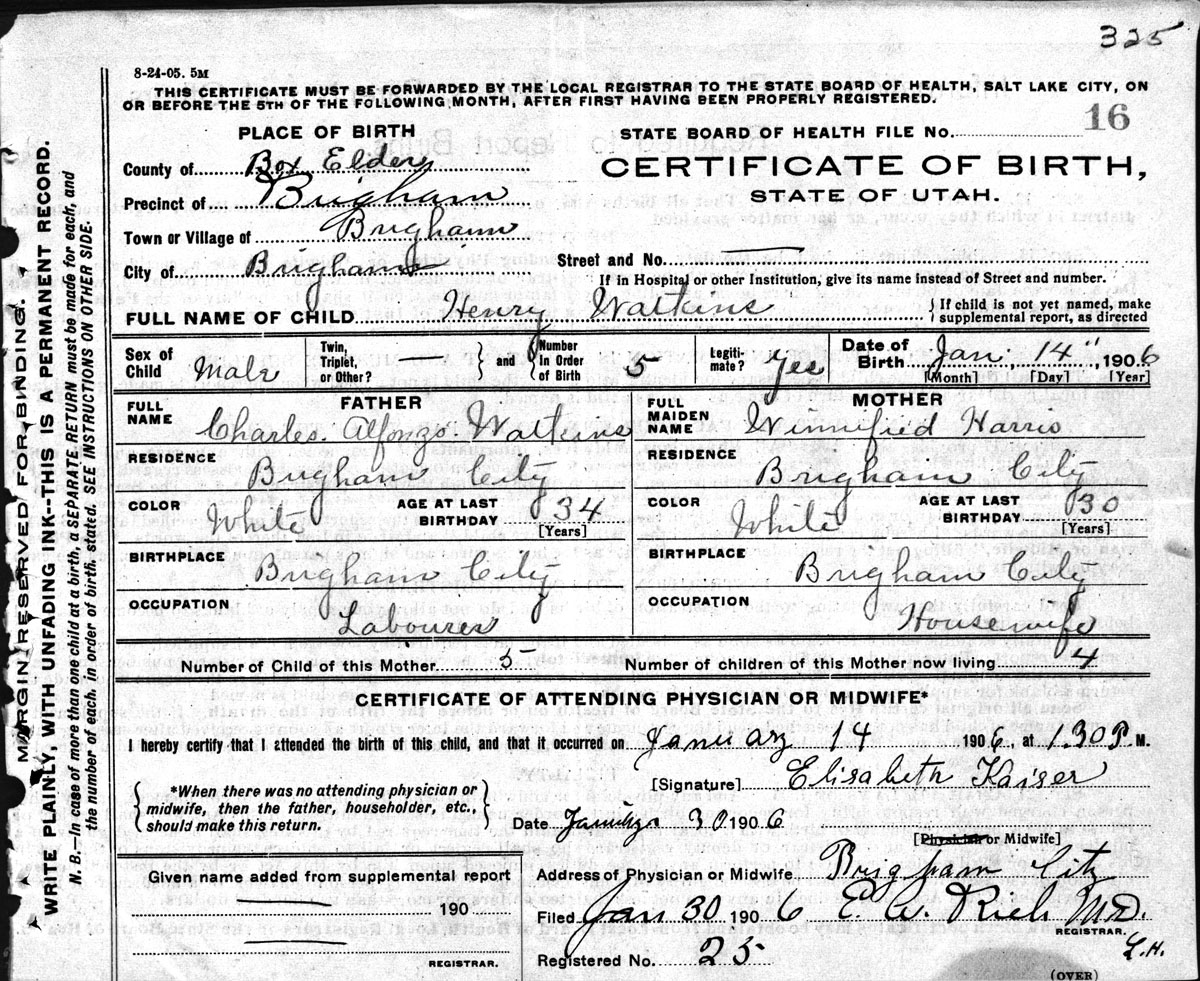 325
8-24-05. 5M
THIS CERTIFICATE MUST BE FORWARDED BY THE LOCAL REGISTRAR TO THE STATE BOARD OF HEALTH, SALT LAKE CITY, ON
OR BEFORE THE 5TH OF THE FOLLOWING MONTH, AFTER FIRST HAVING BEEN PROPERLY REGISTERED.
PLACE OF BIRTH
STATE BOARD OF HEALTH FILE No. 16
County of Box Elder
CERTIFICATE OF BIRTH,
Precinct of Brigham
STATE OF UTAH.
Town or Village of Brigham
City of Brigham
Street and No.
If in Hospital or other Institution, give its name instead of Street and number.
FULL NAME OF CHILD Henry Watkins
} If child is not yet named, make
supplemental report, as directed
Sex of Child Male
Twin, Triplet, or Other?
} and {
Number In Order of Birth 5
Legiti-mate? Yes
Date of Birth Jan. 14" 1906
[Month] [Day] [Year]
FATHER
FULL NAME Charles. Alfonzo. Watkins
RESIDENCE Brigham City
COLOR White
AGE AT LAST BIRTHDAY 34
[Years]
BIRTHPLACE Brigham City
OCCUPATION Labourer
MOTHER
FULL MAIDEN NAME Winnified Harris
RESIDENCE Brigham City
COLOR White
AGE AT LAST BIRTHDAY 30
[Years]
BIRTHPLACE Brigham City
OCCUPATION Housewife
Number of Child of this Mother 5
Number of children of this Mother now living 4
CERTIFICATE OF ATTENDING PHYSICIAN OR MIDWIFE*
I hereby certify that I attended the birth of this child, and that it occurred on January 14 1906, at 1.30 P. M.
{ *When there was no attending physician or
midwife, then the father, householder, etc.,
should make this return. }
[Signature] Elisabeth Kaiser
Date 30 1906
[Physician or Midwife]
Address of Physician or Midwife Brigham City
Filed Jan 30 1906 E. W. Rich M.D.
REGISTRAR.
L.H.
Registered No. 25
(OVER)
Given name added from supplemental report
190
REGISTRAR.
MARGIN RESERVED FOR BINDING.
WRITE PLAINLY, WITH UNFADING INK--THIS IS A PERMANENT RECORD.
N. B.—In case of more than one child at a birth, a SEPARATE RETURN must be made for each, and
the number of each, in order of birth, stated. SEE INSTRUCTIONS ON OTHER SIDE.